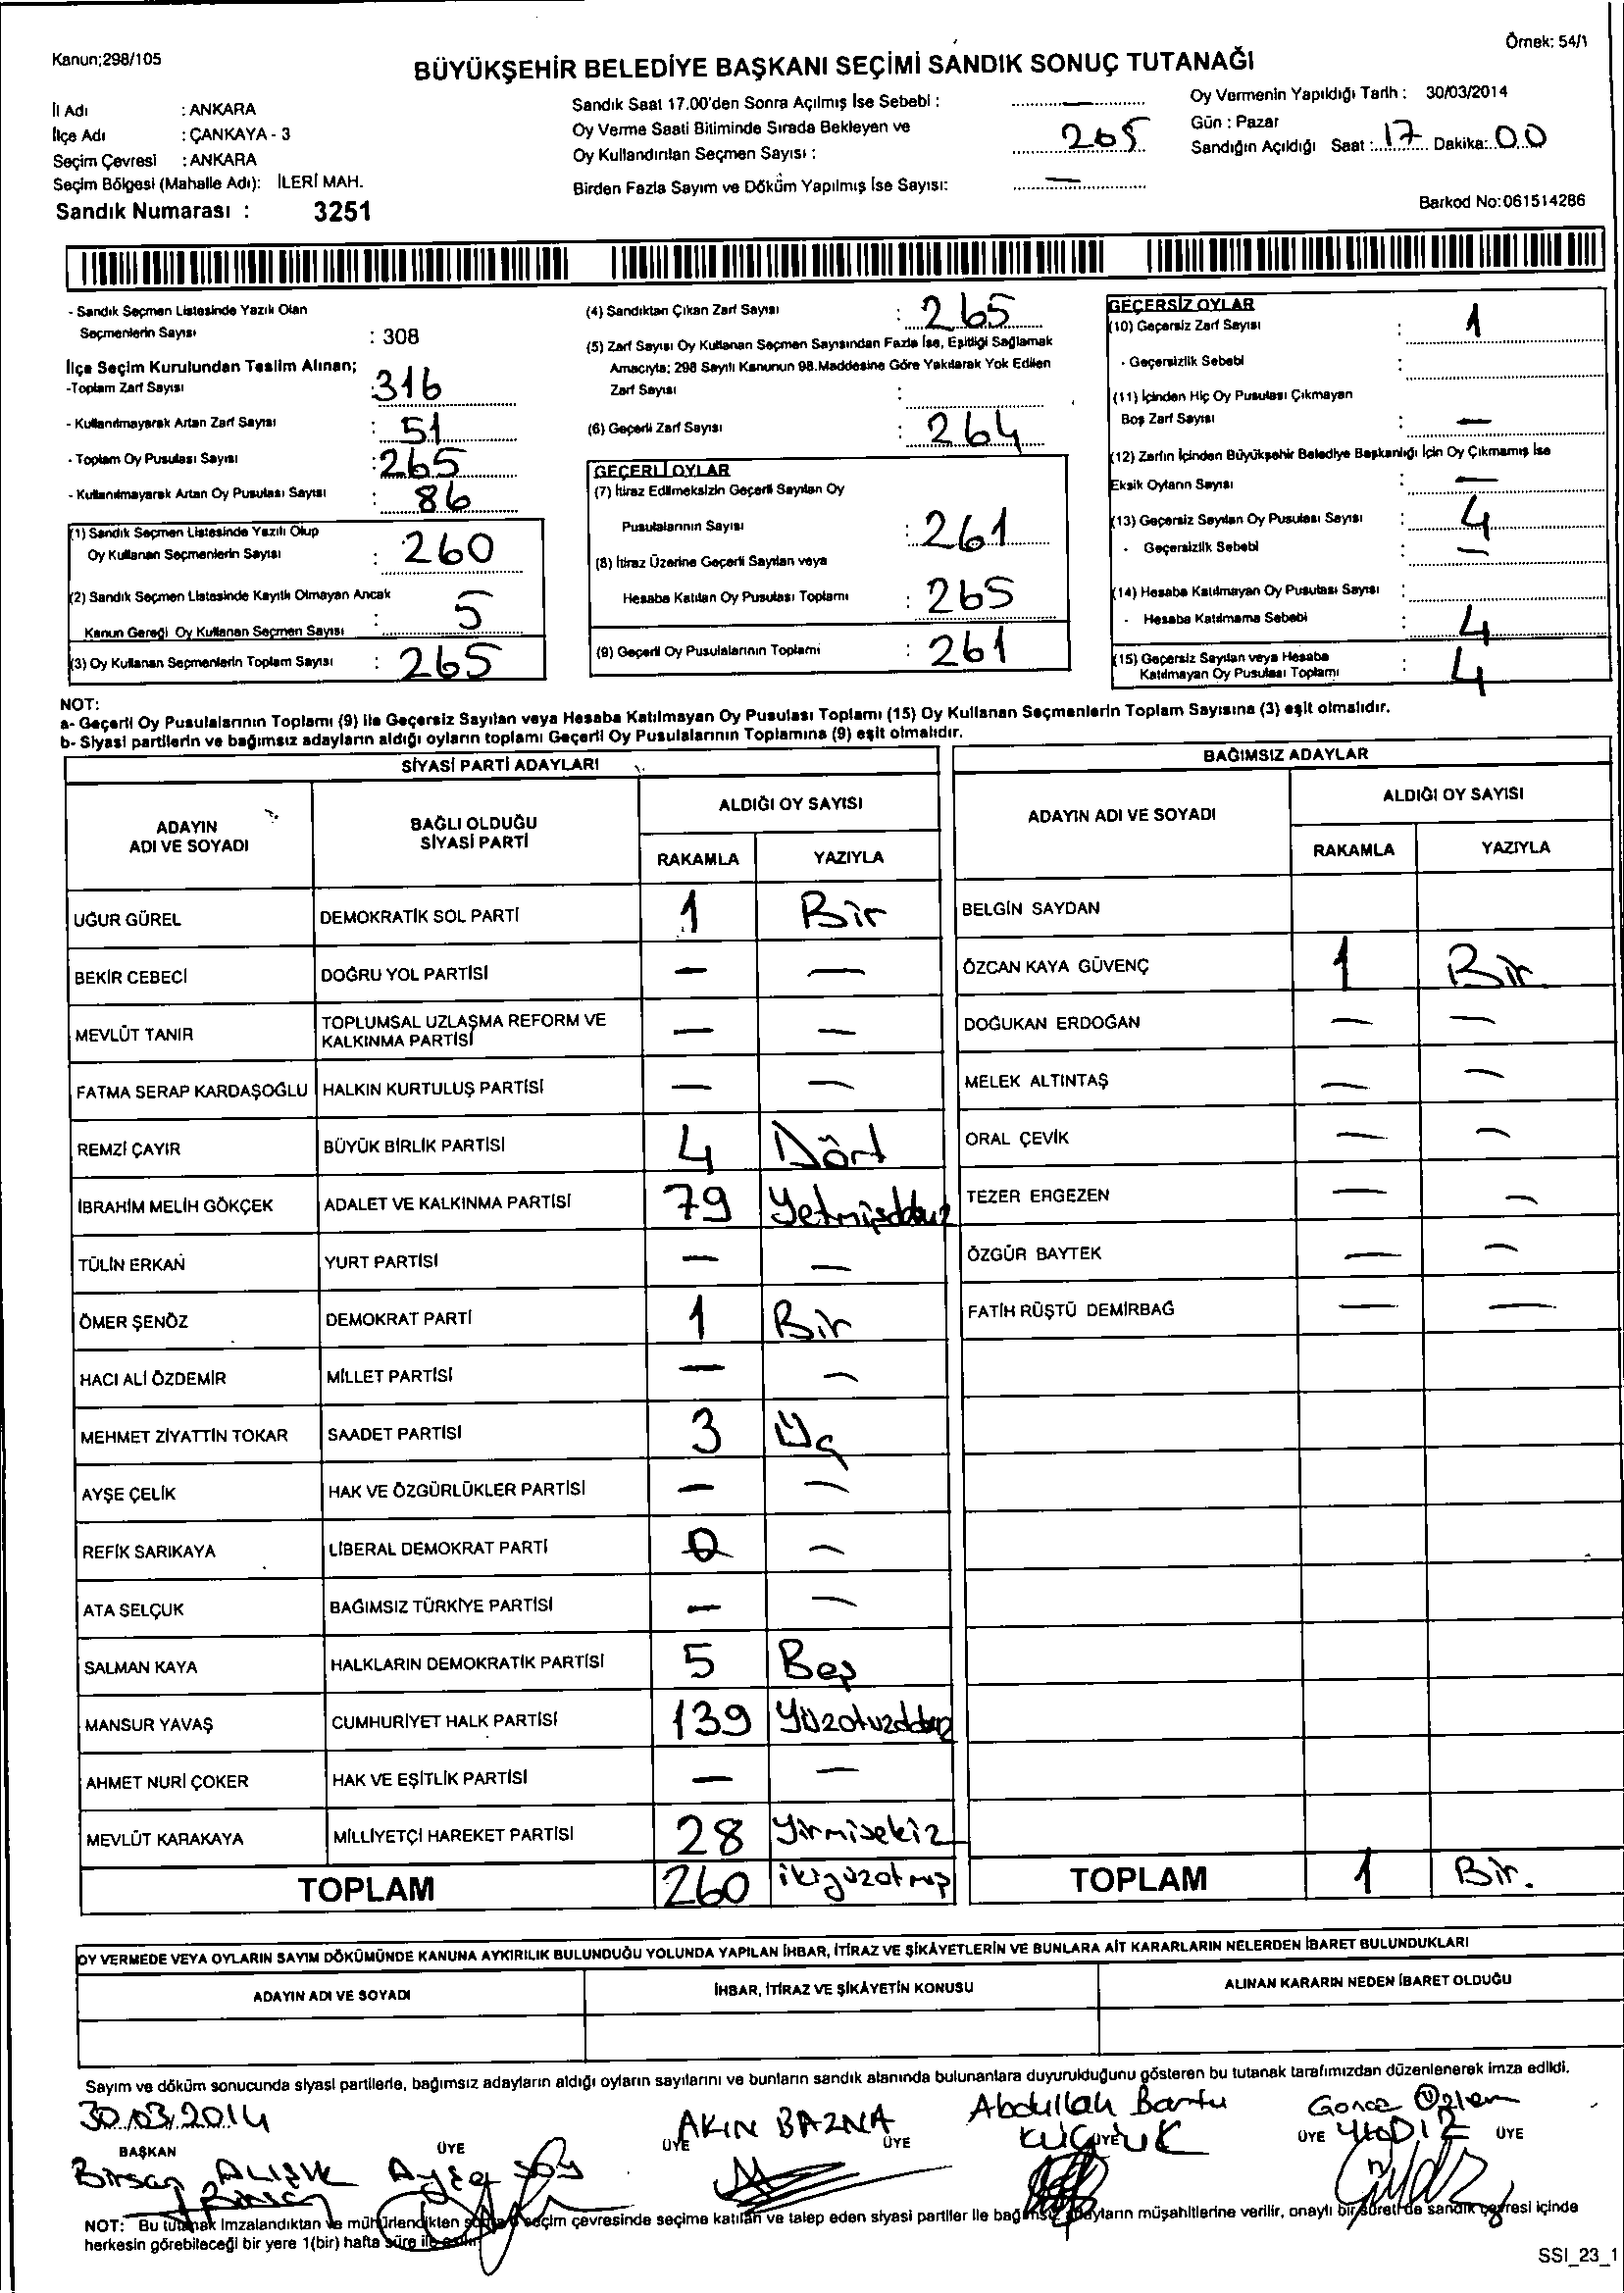 Kanun;298/105
Örnek: 54/1
BÜYÜKŞEHİR BELEDİYE BAŞKANI SEÇİMİ SANDIK SONUÇ TUTANAĞI
İl Adı : ANKARA
İlçe Adı : ÇANKAYA - 3
Seçim Çevresi : ANKARA
Seçim Bölgesi (Mahalle Adı): İLERİ MAH.
Sandık Numarası : 3251
Sandık Saat 17.00'den Sonra Açılmış İse Sebebi : —
Oy Verme Saati Bitiminde Sırada Bekleyen ve
Oy Kullandırılan Seçmen Sayısı : 265
Birden Fazla Sayım ve Döküm Yapılmış İse Sayısı: —
Oy Vermenin Yapıldığı Tarih : 30/03/2014
Gün : Pazar
Sandığın Açıldığı Saat : 17 Dakika: 00
Barkod No:061514286
- Sandık Seçmen Listesinde Yazılı Olan
Seçmenlerin Sayısı : 308
İlçe Seçim Kurulundan Teslim Alınan;
-Toplam Zarf Sayısı : 316
- Kullanılmayarak Artan Zarf Sayısı : 51
- Toplam Oy Pusulası Sayısı : 265
- Kullanılmayarak Artan Oy Pusulası Sayısı : 86
(1) Sandık Seçmen Listesinde Yazılı Olup
Oy Kullanan Seçmenlerin Sayısı : 260
(2) Sandık Seçmen Listesinde Kayıtlı Olmayan Ancak
Kanun Gereği Oy Kullanan Seçmen Sayısı : 5
(3) Oy Kullanan Seçmenlerin Toplam Sayısı : 265
(4) Sandıktan Çıkan Zarf Sayısı : 265
(5) Zarf Sayısı Oy Kullanan Seçmen Sayısından Fazla İse, Eşitliği Sağlamak
Amacıyla; 298 Sayılı Kanunun 98.Maddesine Göre Yakılarak Yok Edilen
Zarf Sayısı :
(6) Geçerli Zarf Sayısı : 264
GEÇERLİ OYLAR
(7) İtiraz Edilmeksizin Geçerli Sayılan Oy
Pusulalarının Sayısı : 261
(8) İtiraz Üzerine Geçerli Sayılan veya
Hesaba Katılan Oy Pusulası Toplamı : 265
(9) Geçerli Oy Pusulalarının Toplamı : 261
GEÇERSİZ OYLAR
(10) Geçersiz Zarf Sayısı : 1
- Geçersizlik Sebebi :
(11) İçinden Hiç Oy Pusulası Çıkmayan
Boş Zarf Sayısı : —
(12) Zarfın İçinden Büyükşehir Belediye Başkanlığı İçin Oy Çıkmamış İse
Eksik Oyların Sayısı : —
(13) Geçersiz Sayılan Oy Pusulası Sayısı : 4
- Geçersizlik Sebebi : —
(14) Hesaba Katılmayan Oy Pusulası Sayısı :
- Hesaba Katılmama Sebebi : 4
(15) Geçersiz Sayılan veya Hesaba
Katılmayan Oy Pusulası Toplamı : 4
NOT:
a- Geçerli Oy Pusulalarının Toplamı (9) ile Geçersiz Sayılan veya Hesaba Katılmayan Oy Pusulası Toplamı (15) Oy Kullanan Seçmenlerin Toplam Sayısına (3) eşit olmalıdır.
b- Siyasi partilerin ve bağımsız adayların aldığı oyların toplamı Geçerli Oy Pusulalarının Toplamına (9) eşit olmalıdır.
SİYASİ PARTİ ADAYLARI
ADAYIN ADI VE SOYADI
BAĞLI OLDUĞU SİYASİ PARTİ
ALDIĞI OY SAYISI
RAKAMLA YAZIYLA
UĞUR GÜREL DEMOKRATİK SOL PARTİ 1 Bir
BEKİR CEBECİ DOĞRU YOL PARTİSİ — —
MEVLÜT TANIR TOPLUMSAL UZLAŞMA REFORM VE KALKINMA PARTİSİ — —
FATMA SERAP KARDAŞOĞLU HALKIN KURTULUŞ PARTİSİ — —
REMZİ ÇAYIR BÜYÜK BİRLİK PARTİSİ 4 Dört
İBRAHİM MELİH GÖKÇEK ADALET VE KALKINMA PARTİSİ 79 Yetmişdokuz
TÜLİN ERKAN YURT PARTİSİ — —
ÖMER ŞENÖZ DEMOKRAT PARTİ 1 Bir
HACI ALİ ÖZDEMİR MİLLET PARTİSİ — —
MEHMET ZİYATTİN TOKAR SAADET PARTİSİ 3 Üç
AYŞE ÇELİK HAK VE ÖZGÜRLÜKLER PARTİSİ — —
REFİK SARIKAYA LİBERAL DEMOKRAT PARTİ 0 —
ATA SELÇUK BAĞIMSIZ TÜRKİYE PARTİSİ — —
SALMAN KAYA HALKLARIN DEMOKRATİK PARTİSİ 5 Beş
MANSUR YAVAŞ CUMHURİYET HALK PARTİSİ 139 Yüzotuzdokuz
AHMET NURİ ÇOKER HAK VE EŞİTLİK PARTİSİ — —
MEVLÜT KARAKAYA MİLLİYETÇİ HAREKET PARTİSİ 28 Yirmisekiz
TOPLAM 260 ikiyüzatmış
BAĞIMSIZ ADAYLAR
ADAYIN ADI VE SOYADI
ALDIĞI OY SAYISI
RAKAMLA YAZIYLA
BELGİN SAYDAN
ÖZCAN KAYA GÜVENÇ 1 Bir
DOĞUKAN ERDOĞAN — —
MELEK ALTINTAŞ — —
ORAL ÇEVİK — —
TEZER ERGEZEN — —
ÖZGÜR BAYTEK — —
FATİH RÜŞTÜ DEMİRBAĞ — —
TOPLAM 1 Bir.
OY VERMEDE VEYA OYLARIN SAYIM DÖKÜMÜNDE KANUNA AYKIRILIK BULUNDUĞU YOLUNDA YAPILAN İHBAR, İTİRAZ VE ŞİKÂYETLERİN VE BUNLARA AİT KARARLARIN NELERDEN İBARET BULUNDUKLARI
ADAYIN ADI VE SOYADI
İHBAR, İTİRAZ VE ŞİKÂYETİN KONUSU
ALINAN KARARIN NEDEN İBARET OLDUĞU
Sayım ve döküm sonucunda siyasi partilerle, bağımsız adayların aldığı oyların sayılarını ve bunların sandık alanında bulunanlara duyurulduğunu gösteren bu tutanak tarafımızdan düzenlenerek imza edildi.
30.03.2014
AKIN BAZNA
Abdullah Bantu
KÜÇÜK
Gonca Özlem
YILDIZ
BAŞKAN ÜYE ÜYE ÜYE ÜYE ÜYE ÜYE
Birsan ALIŞIK
Ayşe
NOT: Bu tutanak imzalandıktan ve mühürlendikten sonra seçim çevresinde seçime katılan ve talep eden siyasi partiler ile bağımsız adayların müşahitlerine verilir, onaylı bir sureti de sandık çevresi içinde
herkesin görebileceği bir yere 1(bir) hafta süre ile asılır.
SSI_23_1